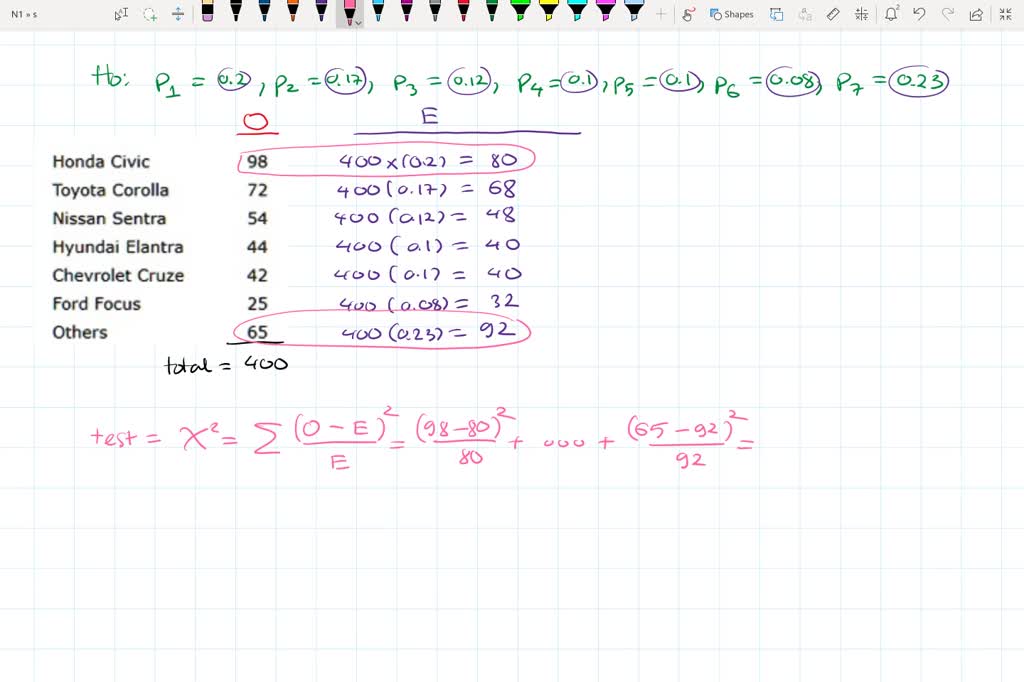 N1 » s
Shapes
Ho: P1 = 0.2, P2 = 0.17, P3 = 0.12, P4 = 0.1, P5 = 0.1, P6 = 0.08, P7 = 0.23
O E
Honda Civic 98 400 x (0.2) = 80
Toyota Corolla 72 400 (0.17) = 68
Nissan Sentra 54 400 (0.12) = 48
Hyundai Elantra 44 400 (0.1) = 40
Chevrolet Cruze 42 400 (0.1) = 40
Ford Focus 25 400 (0.08) = 32
Others 65 400 (0.23) = 92
total = 400
test = X² = Σ (O - E)²/E = (98-80)²/80 + ooo + (65-92)²/92 =